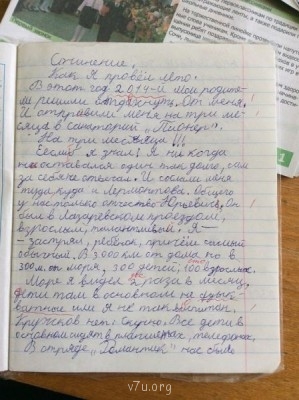 Сочинение.
Как я провёл лето.
В этот год 2014-й мои родители
решили отдохнуть. От меня.
И отправили меня на три месяца
в санаторий "Пионер".
На три месяца !!!
Если б я знал! Я никогда
не оставался один так долго, сам
за себя не отвечал. И сослали меня
туда, куда и Лермонтова. Общего
у нас только отчество Юрьевич. Он
был в Лазаревском проездом,
взрослым, талантливым. Я –
– застрял, ребёнок, причём самый
обычный. В 3.000 км от дома но в
300 м. от моря, 300 детей, 100 взрослых.
Море я видел 2 раза в месяц,
дети там в основном не
или я не так воспитан.
Кружков нет. Скучно. Все дети в
основном сидят в планшетах, телефонах.
В отряде "Романтик" нас было
v7u.org